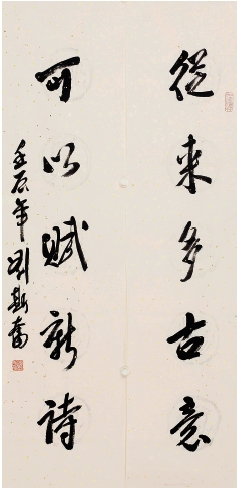 從来多古意
可以賦新詩
壬辰年劉斯奮